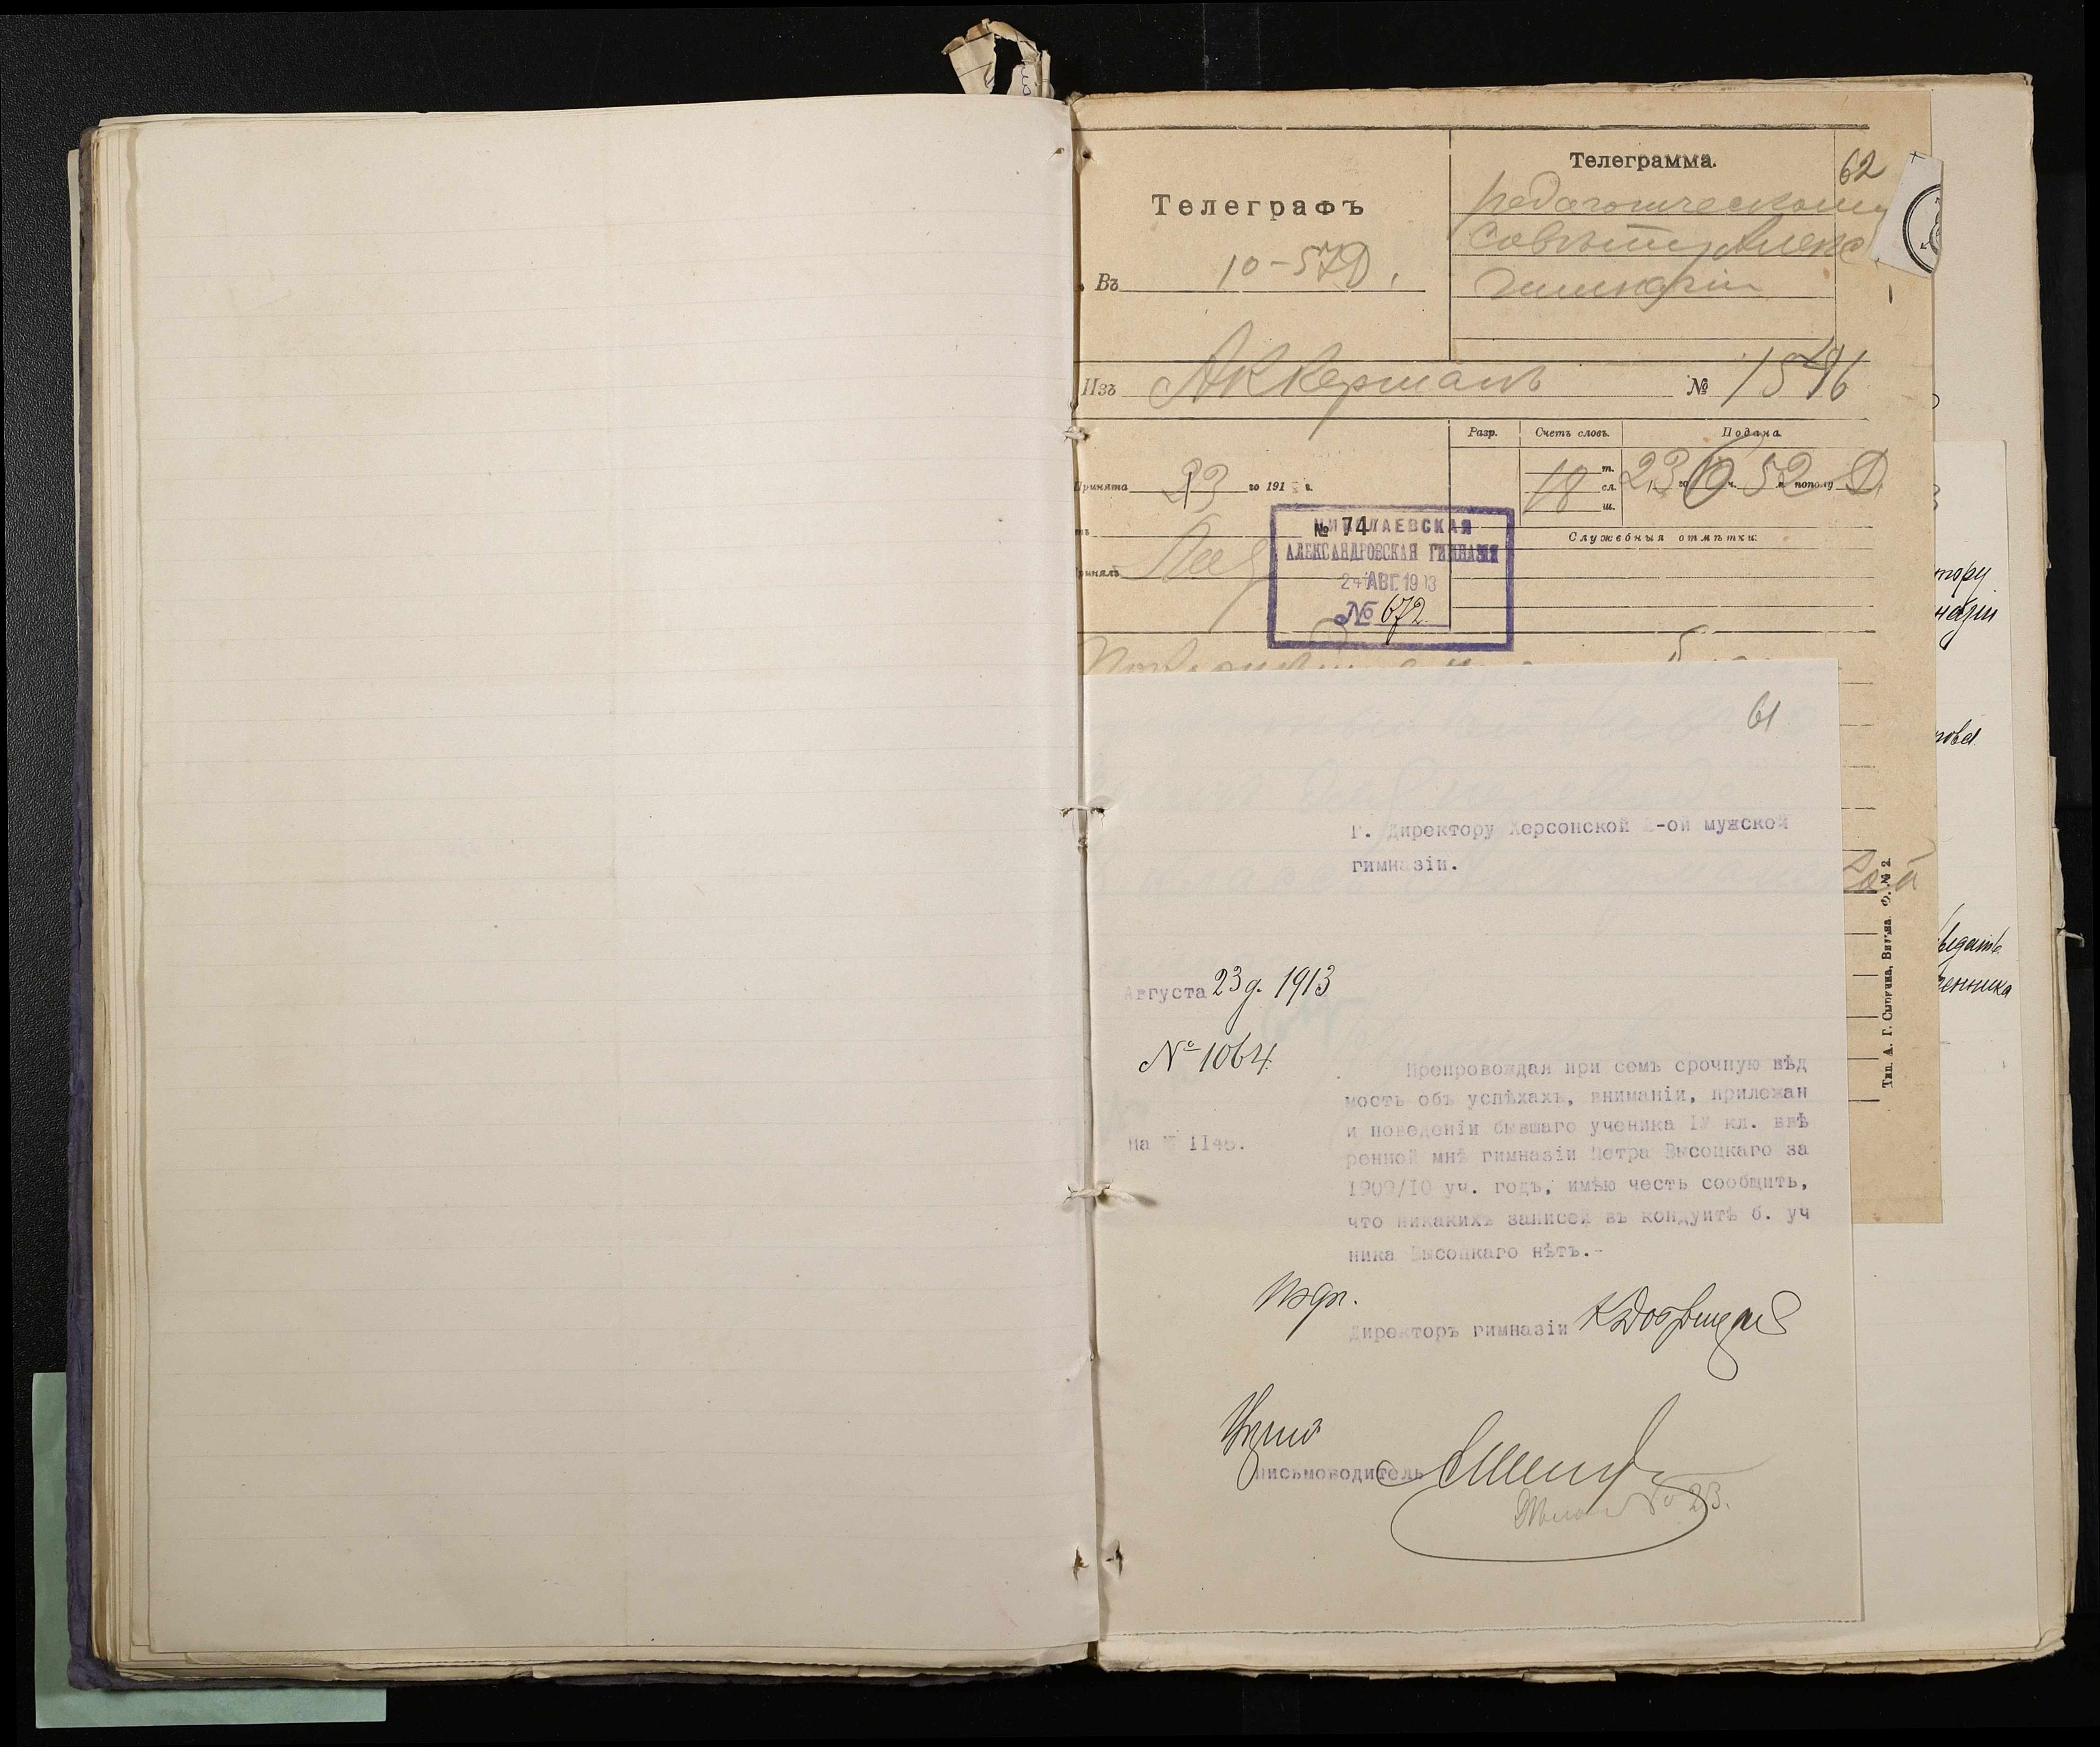 Телеграмма.
62
Телеграфъ
педагогическому
совѣту Алекс
гимназіи
Въ 10-57D.
Изъ Аккермань № 1546
Разр. Счетъ словъ. Подана
Принята 23 го 191 г.
18 т. сл. ш.
23 го 10 ч. 52 м. пополу D.
Служебныя отмѣтки:
№ 74
НИКОЛАЕВСКАЯ
АЛЕКСАНДРОВСКАЯ ГИМНАЗІЯ
24 АВГ. 1913
№ 672
61
Г. Директору Херсонской 2-ой мужской
гимназіи.
Августа 23 д. 1913
№ 1064.
На № 1145.
Препровождая при семъ срочную вѣд
мость объ успѣхахъ, вниманіи, прилежан
и поведеніи бывшаго ученика IV кл. ввѣ
ренной мнѣ гимназіи Петра Высоцкаго за
1909/10 уч. годъ, имѣю честь сообщить,
что никакихъ записей въ кондуитѣ б. уч
ника Высоцкаго нѣтъ.-
Директоръ гимназіи
Письмоводитель
Тип. А. Г. Сыркина, Вильна. Ф. № 2.
тору
назіи
ведать
венника